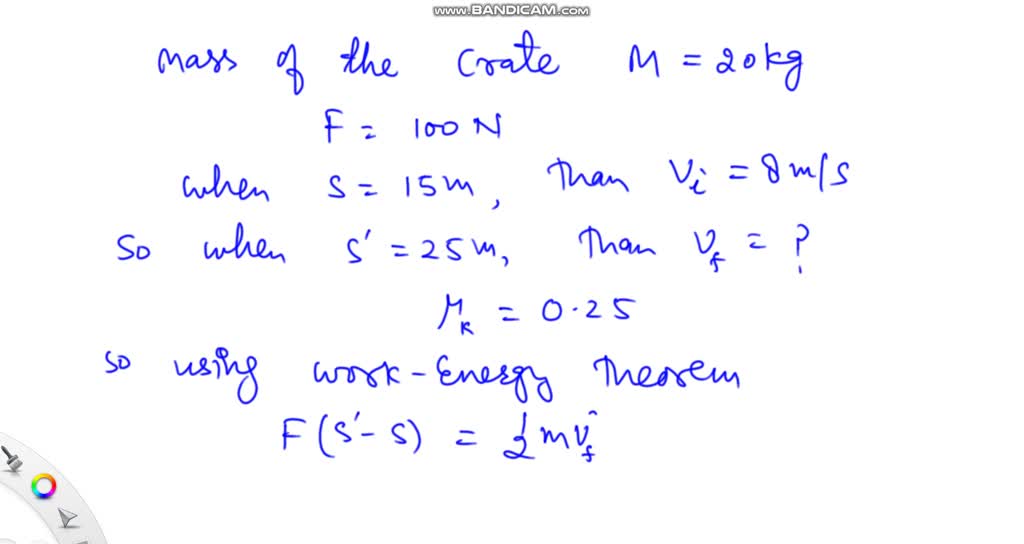 www.BANDICAM.com
Mass of the crate M = 20kg
F = 100 N
when S = 15m, than Vi = 8m/s
So when S' = 25m, than Vf = ?
μk = 0.25
so using work-Energy Theorem
F(S'-S) = 1/2 mVf²